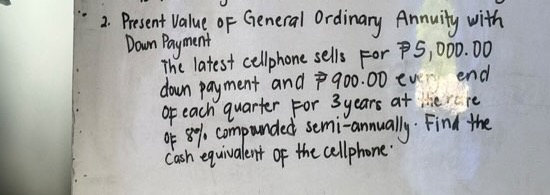 2. Present Value of General Ordinary Annuity with
Down Payment
The latest cellphone sells for ₱5,000.00
down payment and ₱900.00 every end
of each quarter for 3 years at the rate
of 8% compounded semi-annually. Find the
Cash equivalent of the cellphone.